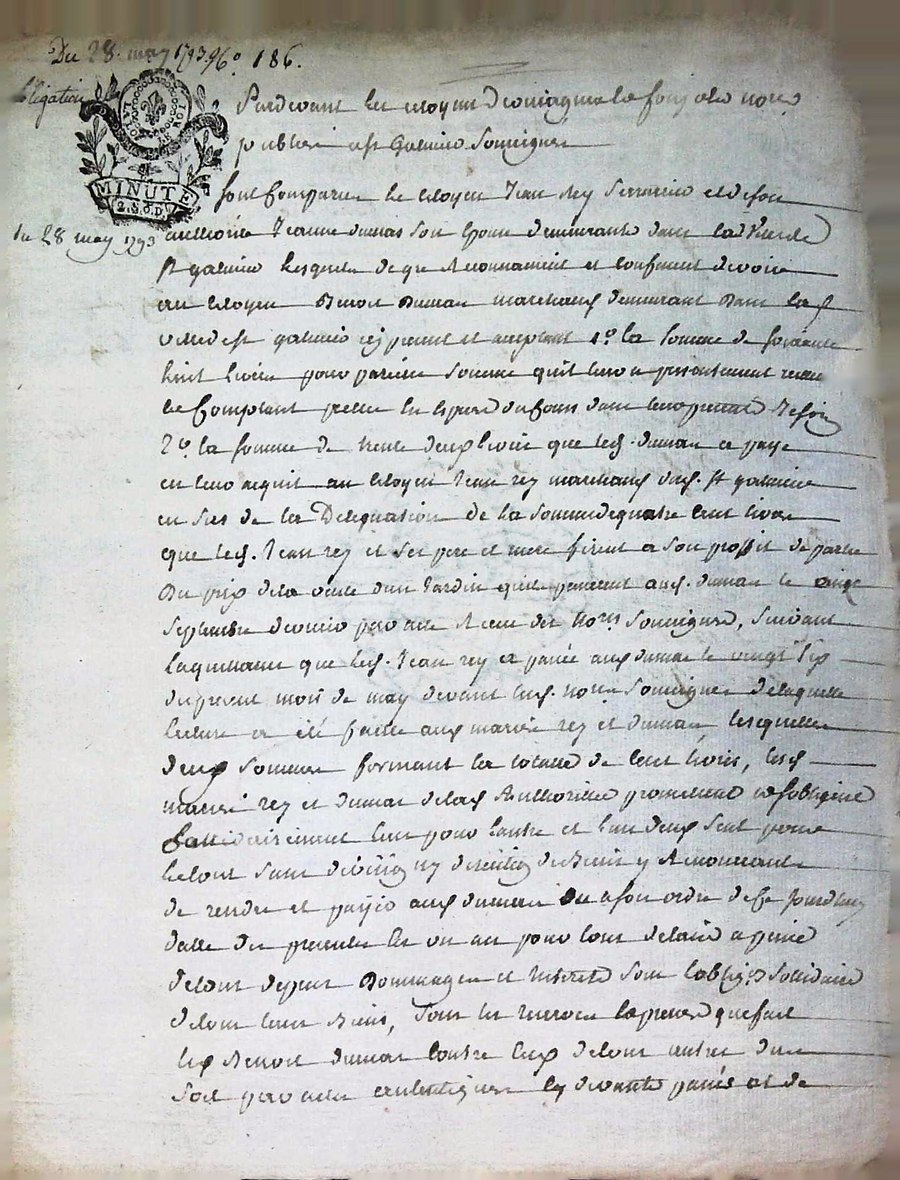 Du 28. may 1793. N.º 186.
obligation
LA LOI LE ROI
MINUTE
2.S.6.D.
du 28 may 1793
Pardevant les citoyens
publics a st Galmier Soussignés
sont Comparu le citoyen Jean Rey et de son
authorité Jeanne dumas son epouse demeurants dans la Ville de
st galmier lesquels de gré Reconnaissent et confessent devoir
au citoyen Benoit Dumas marchand demeurant Dans la d
ville de st galmier icy present et acceptant 1.º la Somme de soixante
huit livres pour pareille Somme qu'il leur a presentement
Comptant
2.º la somme de trente deux livres que led. dumas a payé
en leur acquit au citoyen Jean rey marchand dud. st galmier
en sus de la Delegation de la Somme de quatre cent livres
que led. Jean rey et ses pere et mere firent a son proffit de partie
Du prix de la vente d'un Jardin qu'ils passerent aud. dumas le onze
Septembre dernier par acte Receu des no.res Soussignés, Suivant
la quittance que led. Jean rey a passée aud dumas le vingt six
du present mois de may devant lesd. no.res Soussignés de laquelle
lecture a été faitte aud mariés rey et dumas lesquelles
deux Sommes formant la totalle de Cent livres, lesd
mariés rey et dumas de lad Authorité promettent et s'obligent
Sollidairement l'un pour l'autre et l'un d'eux seul pour
le tout Sans division ny discution de Biens y Renonçant
de rendre et payer aud dumas ou a son ordre de ce Jourd'huy
datte des presentes en un an pour tout delaid a peine
de tous depens Dommages et interets Sous l'oblig.on Sollidaire
de tous leurs Biens, Sous les reserves expresses que fait
led Benoit dumas contre eux de tous autres dus
Soit par actes authentiques